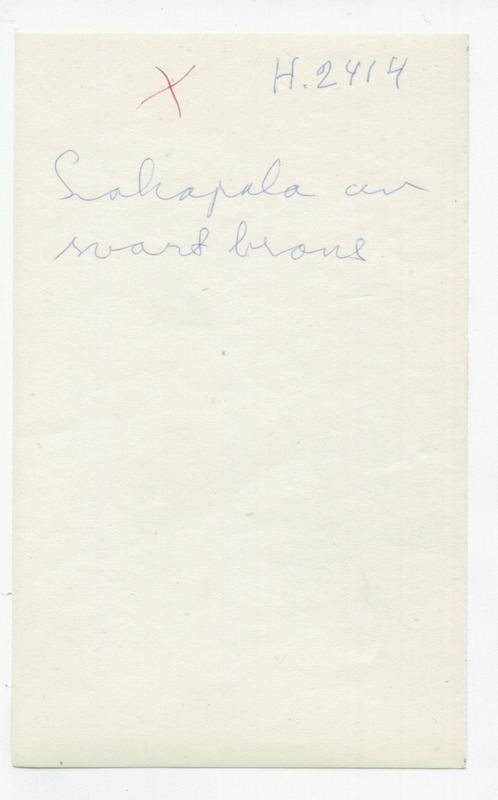 X H.2414
Siakapala av
svart brons